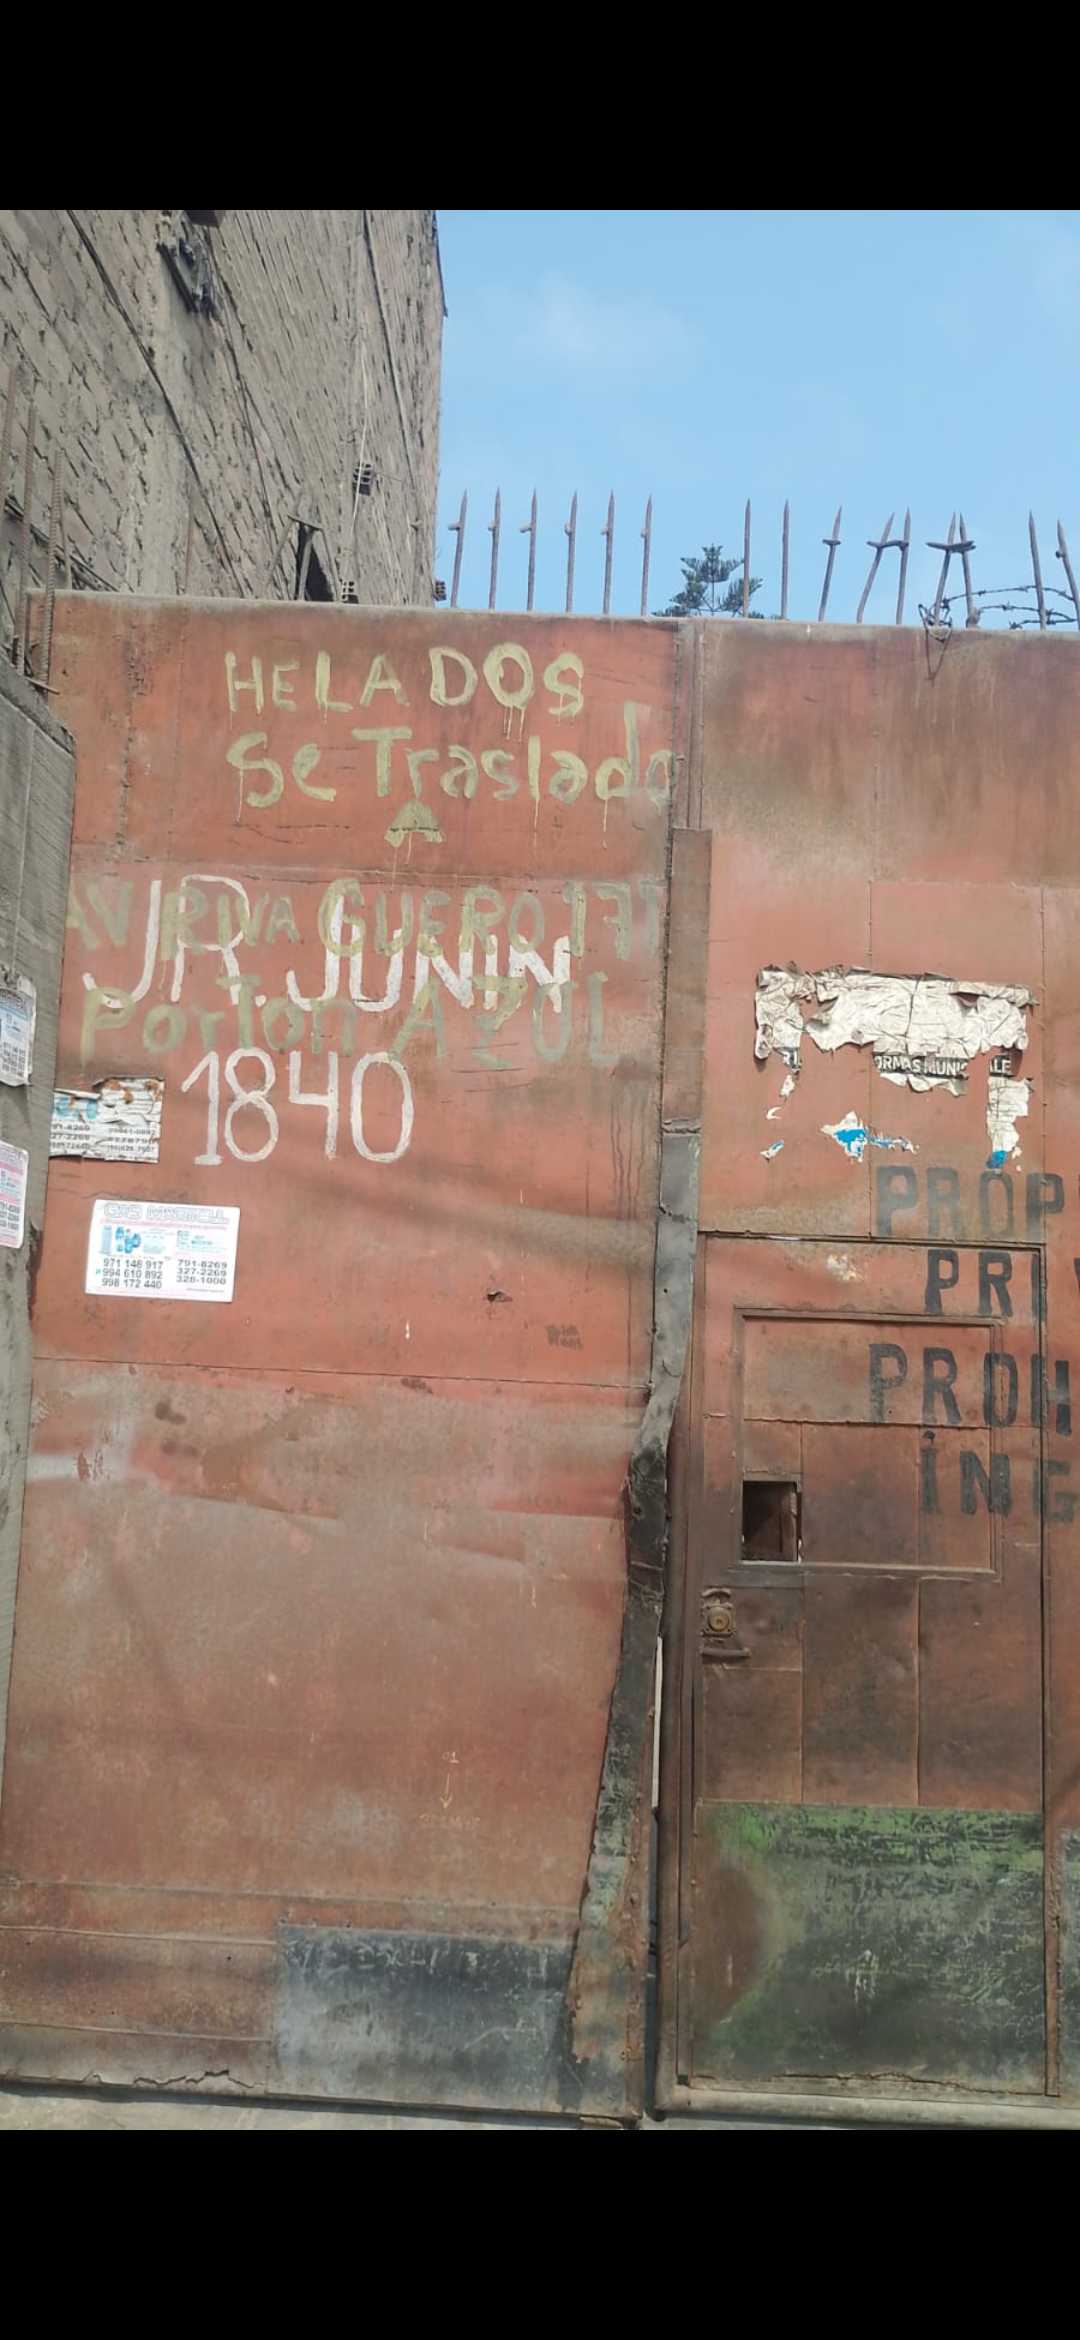 HELADOS
Se Traslado
A
AV RIVA GUERO 177
JR. JUNIN
PorTon AZUL
1840
GAS MAXICELL
971 148 917 791-8269
994 610 892 327-2269
998 172 440 328-1000
ORMAS MUNI
PROP
PRIV
PROH
ING